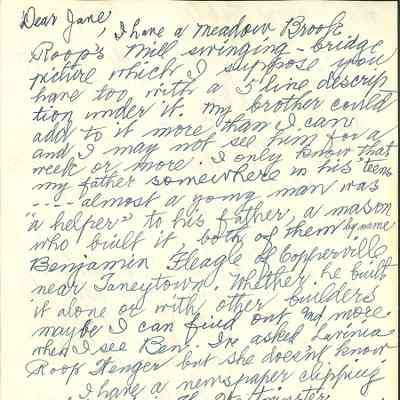 Dear Jane,
I have a Meadow Brook
Roop's Mill swinging-bridge
picture which I suppose you
have too with a 5 line descrip
tion under it. My brother could
add to it more than I can
and I may not see him for a
week or more. I only know that
my father somewhere in his 'teens
---- almost a young man was
"a helper" to his father, a mason
who built it, both of them by name
Benjamin Fleagle of Copperville
near Taneytown. Whether he built
it alone or with other builders
maybe I can find out and more
when I see Ben. I've asked Lavinia
Roop Wenger but she doesn't know.
I have a newspaper clipping
Westminster